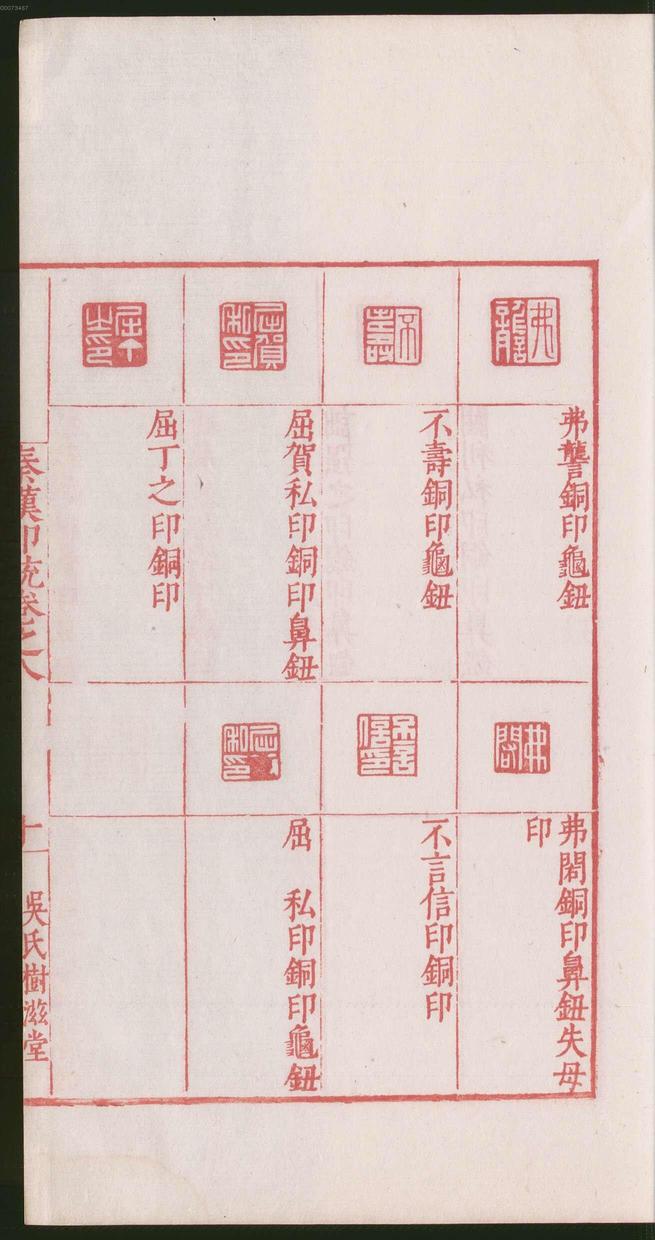 00073467
弗讋銅印龜鈕
不壽銅印龜鈕
屈賀私印銅印鼻鈕
屈丁之印銅印
弗閎銅印鼻鈕失母
印
不言信印銅印
屈　私印銅印龜鈕
秦漢印統卷之八
十一
吳氏樹滋堂